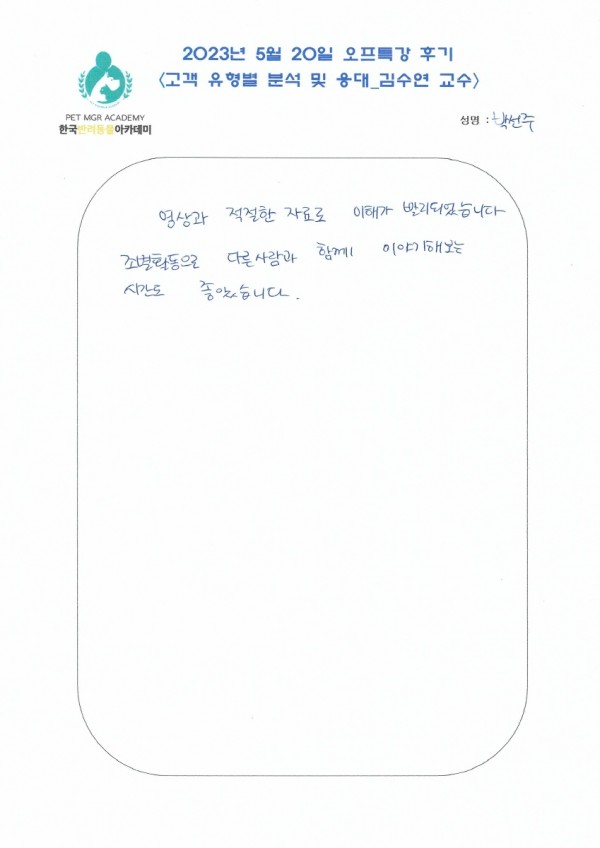 2023년 5월 20일 오프특강 후기
<고객 유형별 분석 및 응대_김수연 교수>
PET MGR ACADEMY
한국반려동물아카데미
성명 : 박선주
영상과 적절한 자료로 이해가 빨리되었습니다
조별활동으로 다른사람과 함께 이야기해보는
시간도 좋았습니다.